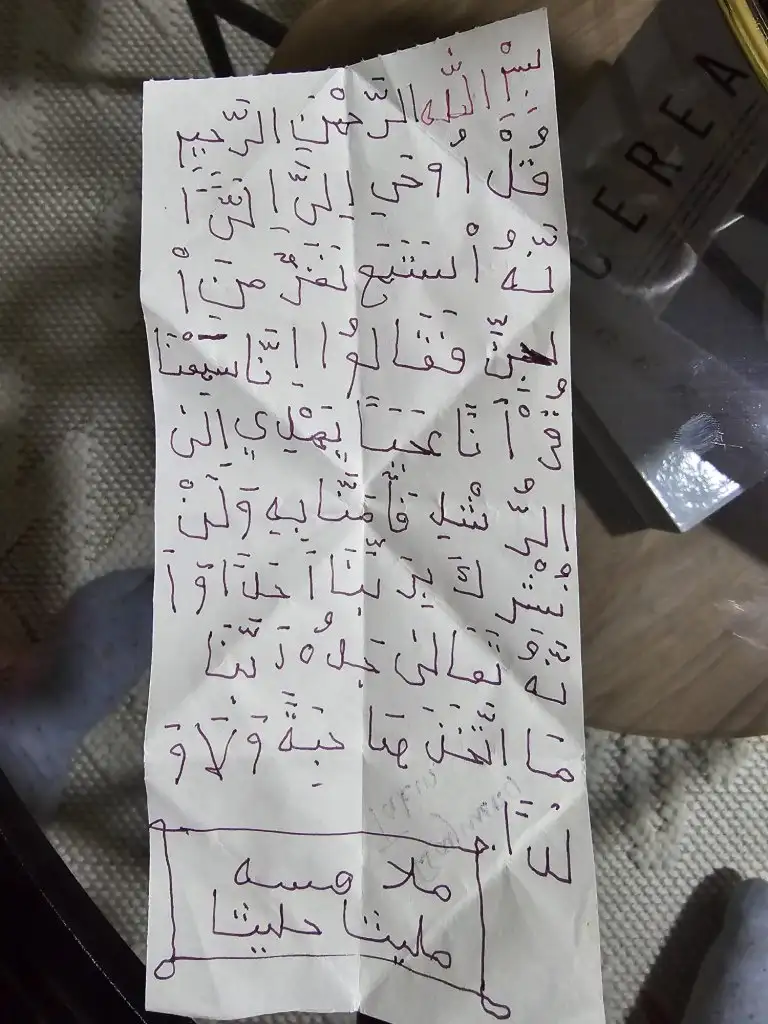 بِسْمِ اللّٰهِ الرَّحْمٰنِ الرَّحِيْمِ
قُلْ اُوْحِيَ اِلَيَّ اَنَّ
هُ اسْتَمَعَ نَفَرٌ مِنَ الْ
جِنِّ فَقَالُوْا اِنَّا سَمِعْنَا
قُرْاٰنًا عَجَبًا يَهْدِيْ اِلَى
الرُّشْدِ فَاٰمَنَّا بِهِ وَلَنْ
نُشْرِكَ بِرَبِّنَا اَحَدًا وَاَ
نَّهُ تَعَالٰى جَدُّ رَبِّنَا
مَا اتَّخَذَ صَاحِبَةً وَلَا وَ
لَدًا
مليثا حليثا
CEREA